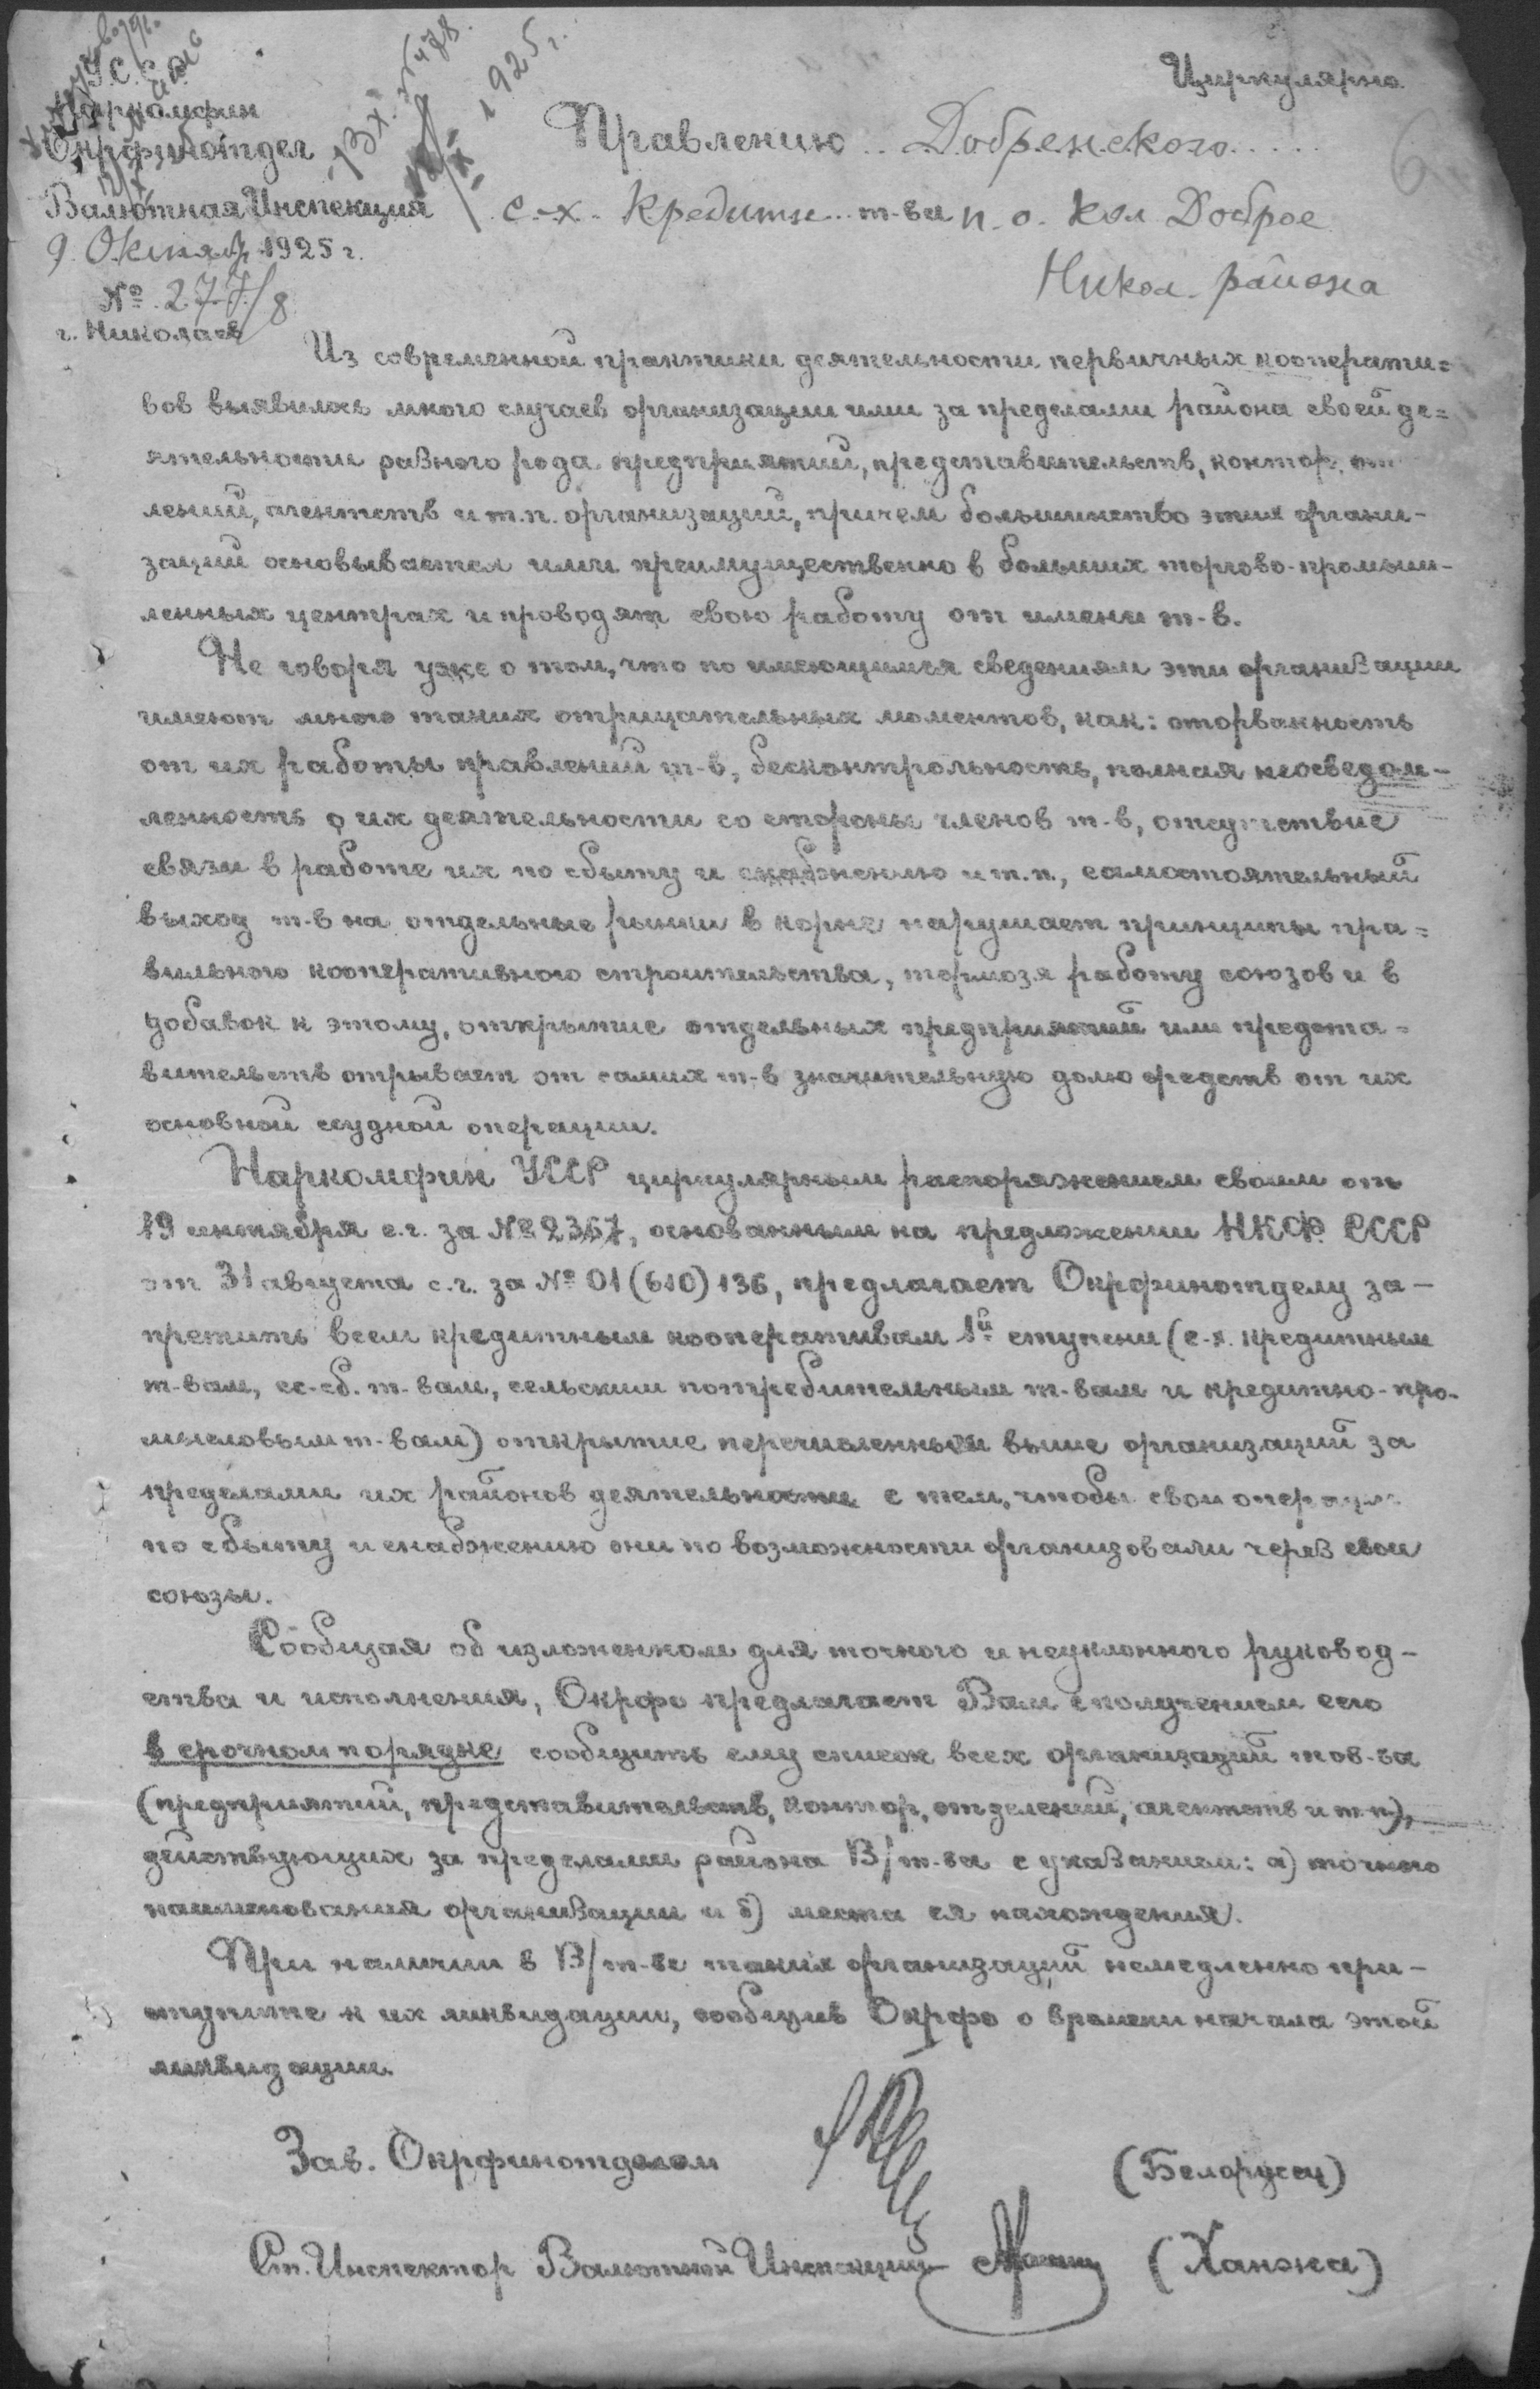 Циркулярно.
У.С.С.Р.
Наркомфин
Окрфинотдел
Валютная Инспекция
9 Октября 1925 г.
№ 277/8
г. Николаев
Вх. № 478.
1925 г.
6
Правлению Добренского
с.-х. Кредитн. т-ва п. о. Кол Доброе
Никол. района
Из современной практики деятельности первичных кооперати=
вов выявилось много случаев организации ими за пределами района своей де=
ятельности разного рода предприятий, представительств, контор, от
лений, агентств и т.п. организаций, причем большинство этих органи-
заций основывается ими преимущественно в больших торгово-промыш-
ленных центрах и проводят свою работу от имени т-в.
Не говоря уже о том, что по имеющимся сведениям эти организации
имеют много таких отрицательных моментов, как: оторванность
от их работы правлений т-в, бесконтрольность, полная неосведом-
ленность о их деятельности со стороны членов т-в, отсутствие
связи в работе их по сбыту и снабжению и т.п., самостоятельный
выход т-в на отдельные рынки в корне нарушает принципы пра=
вильного кооперативного строительства, тормозя работу союзов и в
добавок к этому, открытие отдельных предприятий или предста=
вительств отрывает от самих т-в значительную долю средств от их
основной ссудной операции.
Наркомфин УССР циркулярным распоряжением своим от
19 сентября с.г. за № 2367, основанным на предложении НКФ СССР
от 31 августа с.г. за № 01 (610) 136, предлагает Окрфинотделу за-
претить всем кредитным кооперативам 1й ступени (с-х. кредитным
т-вам, сс-сб. т-вам, сельским потребительным т-вам и кредитно-про-
мысловым т-вам) открытие перечисленных выше организаций за
пределами их районов деятельности с тем, чтобы свои операции
по сбыту и снабжению они по возможности организовали через свои
союзы.
Сообщая об изложенном для точного и неуклонного руковод-
ства и исполнения, Окрфо предлагает Вам с получением сего
в срочном порядке сообщить ему список всех организаций тов-ва
(предприятий, представительств, контор, отделений, агентств и т.п.),
действующих за пределами района В/т-ва с указанием: а) точного
наименования организации и б) места ея нахождения.
При наличии в В/т-ве таких организаций немедленно при-
ступите к их ликвидации, сообщив Окрфо о времени начала этой
ликвидации.
Зав. Окрфинотделом (Белорусец)
Ст. Инспектор Валютной Инспекции (Ханжа)